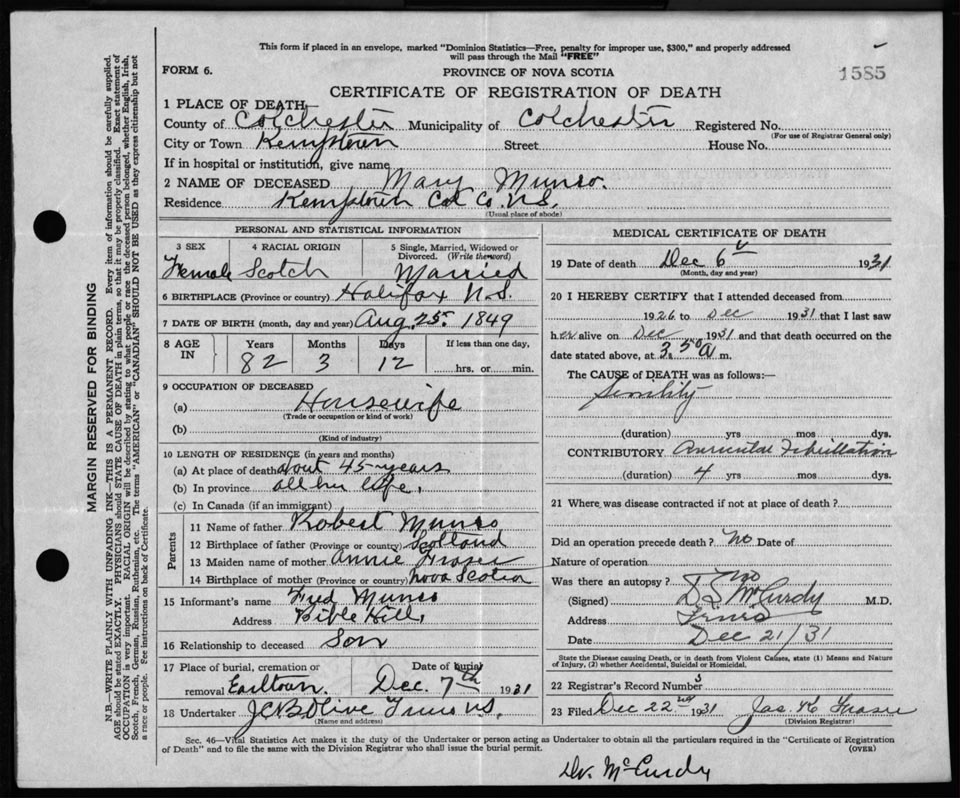 This form if placed in an envelope, marked "Dominion Statistics—Free, penalty for improper use, $300," and properly addressed
will pass through the Mail "FREE"
FORM 6.
PROVINCE OF NOVA SCOTIA
1585
CERTIFICATE OF REGISTRATION OF DEATH
1 PLACE OF DEATH—
County of Colchester Municipality of Colchester Registered No.
(For use of Registrar General only)
City or Town Kemptown Street House No.
If in hospital or institution, give name
2 NAME OF DECEASED Mary Munro.
Residence Kemptown Col Co. N.S.
(Usual place of abode)
PERSONAL AND STATISTICAL INFORMATION
3 SEX 4 RACIAL ORIGIN 5 Single, Married, Widowed or
Divorced. (Write the word)
Female Scotch Married
6 BIRTHPLACE (Province or country) Halifax N.S.
7 DATE OF BIRTH (month, day and year) Aug. 25th 1849
8 AGE IN Years Months Days If less than one day,
82 3 12 hrs. or min.
9 OCCUPATION OF DECEASED
(a) Housewife
(Trade or occupation or kind of work)
(b)
(Kind of industry)
10 LENGTH OF RESIDENCE (in years and months)
(a) At place of death about 45 years
(b) In province all her life.
(c) In Canada (if an immigrant)
Parents
11 Name of father Robert Munro
12 Birthplace of father (Province or country) Scotland
13 Maiden name of mother Annie Fraser
14 Birthplace of mother (Province or country) Nova Scotia
15 Informant's name Fred Munro
Address Bible Hill,
16 Relationship to deceased Son
17 Place of burial, cremation or Date of burial
removal Earltown. Dec. 7th 1931
18 Undertaker J.C.B. Olive Truro N.S.
(Name and address)
MEDICAL CERTIFICATE OF DEATH
19 Date of death Dec 6 1931
(Month, day and year)
20 I HEREBY CERTIFY that I attended deceased from
1926 to Dec 1931 that I last saw
her alive on Dec 1931 and that death occurred on the
date stated above, at 3.50 A m.
The CAUSE of DEATH was as follows:—
Senility
(duration) yrs mos dys.
CONTRIBUTORY Auricular Fibrillation
(duration) 4 yrs mos dys.
21 Where was disease contracted if not at place of death?
Did an operation precede death? No Date of
Nature of operation
Was there an autopsy? No
(Signed) D S McCurdy M.D.
Address Truro
Date Dec 21/31
State the Disease causing Death, or in death from Violent Causes, state (1) Means and Nature
of Injury, (2) whether Accidental, Suicidal or Homicidal.
22 Registrar's Record Number 3
23 Filed Dec 22nd 1931 Jas. K Fraser
(Division Registrar)
Sec. 46—Vital Statistics Act makes it the duty of the Undertaker or person acting as Undertaker to obtain all the particulars required in the "Certificate of Registration
of Death" and to file the same with the Division Registrar who shall issue the burial permit.
(OVER)
Dr. McCurdy
MARGIN RESERVED FOR BINDING
N.B.—WRITE PLAINLY WITH UNFADING INK—THIS IS A PERMANENT RECORD. Every item of information should be carefully supplied.
AGE should be stated EXACTLY. PHYSICIANS should STATE CAUSE OF DEATH in plain terms, so that it may be properly classified. Exact statement of
OCCUPATION is very important. RACIAL ORIGIN will be described by stating to what people or race the deceased person belonged, whether English, Irish,
Scotch, French, German, Russian, Ruthenian, etc. The terms "AMERICAN" or "CANADIAN" SHOULD NOT BE USED as they express citizenship but not
a race or people. Fee instructions on back of Certificate.